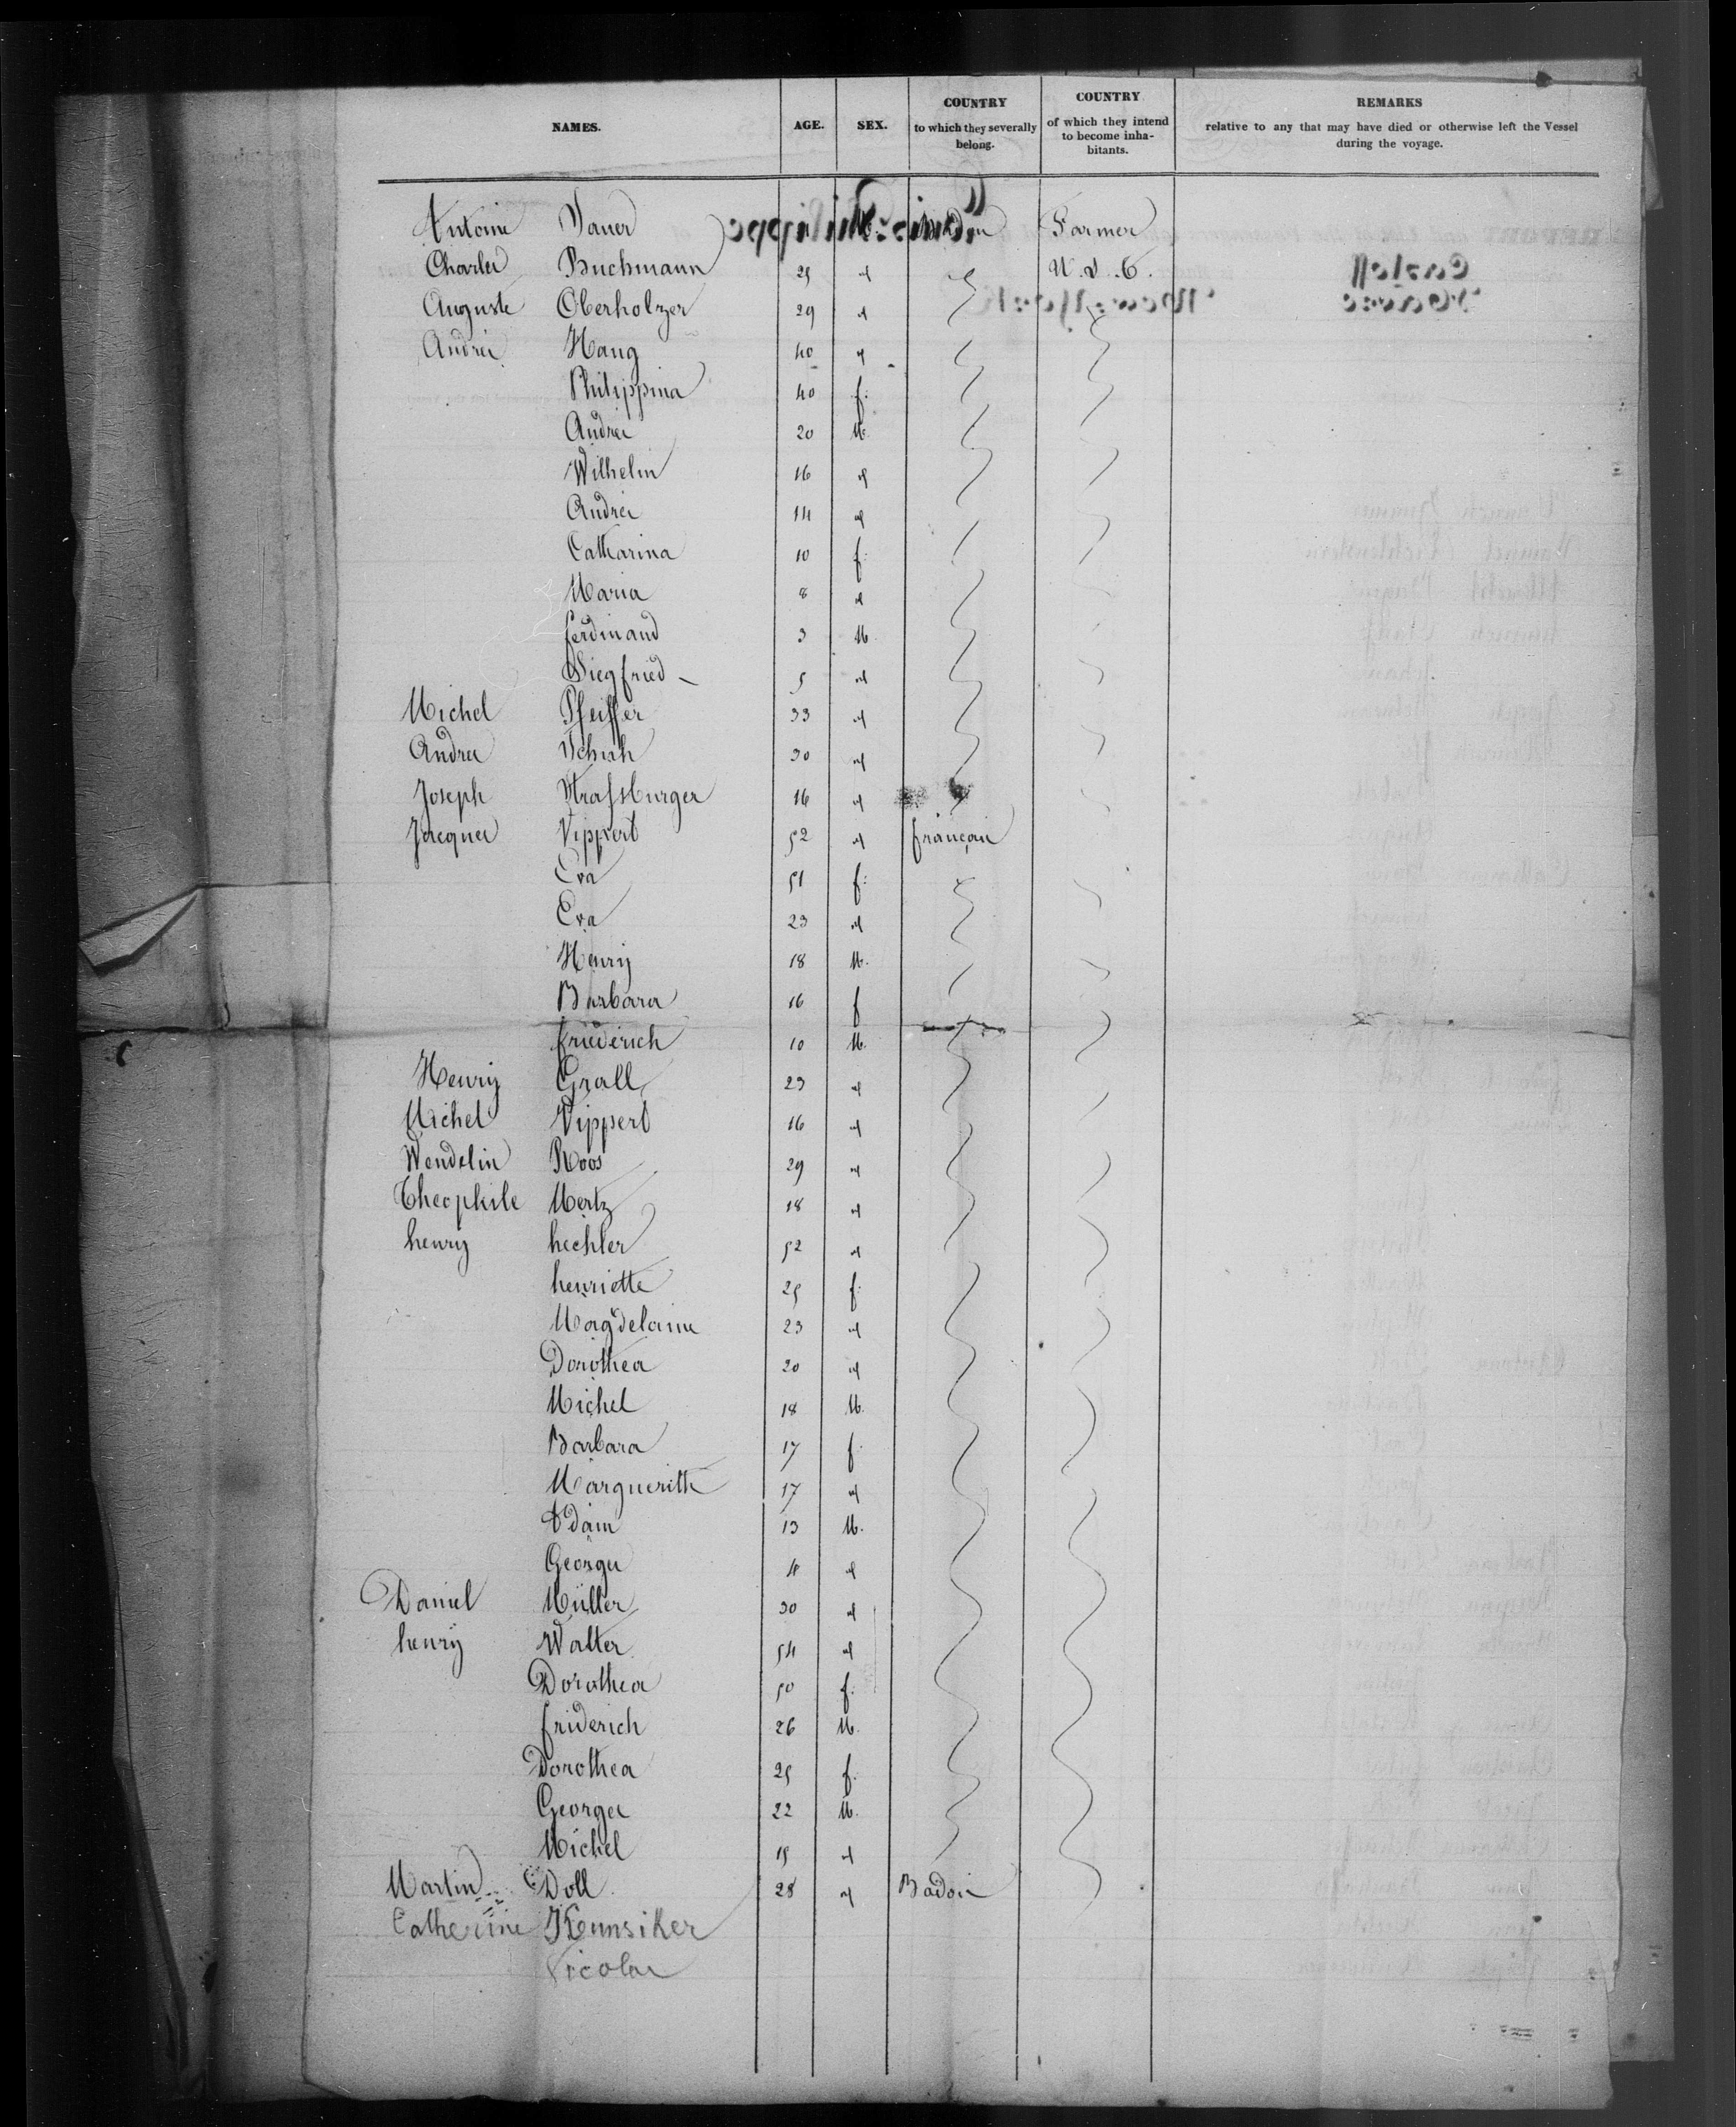 NAMES. AGE. SEX. COUNTRY to which they severally belong. COUNTRY of which they intend to become inhabitants. REMARKS relative to any that may have died or otherwise left the Vessel during the voyage.
Antoine M. Farmer
Charles Buchmann 25 "
Auguste Oberholzer 29 "
André Haug 40 "
Philippina 40 f.
André 20 M.
Wilhelm 16 "
André 14 "
Catharina 10 f.
Maria 8 "
ferdinand 3 M.
Siegfried 5 "
Michel Pfeiffer 33 "
André 30 "
Joseph Strassburger 16 "
Jacques Vippert 52 " français
Eva 51 f.
Eva 23 "
Henry 18 M.
Barbara 16 f
friederich 10 M.
Henry Grall 23 "
Michel Vippert 16 "
Wendelin Roos 29 "
Theophile Mertz 18 "
henry hechler 52 "
henriette 25 f.
Magdelaine 23 "
Dorothea 20 "
Michel 18 M.
Barbara 17 f.
Margueritte 17 "
Adam 13 M.
Georges "
Daniel Müller 30 "
henry Walter 54 "
Dorothea 50 f.
friderich 26 M.
Dorothea 25 f.
Georges 22 M.
Michel 15 "
Martin Doll 28 " Badois
Catherine
Nicolas